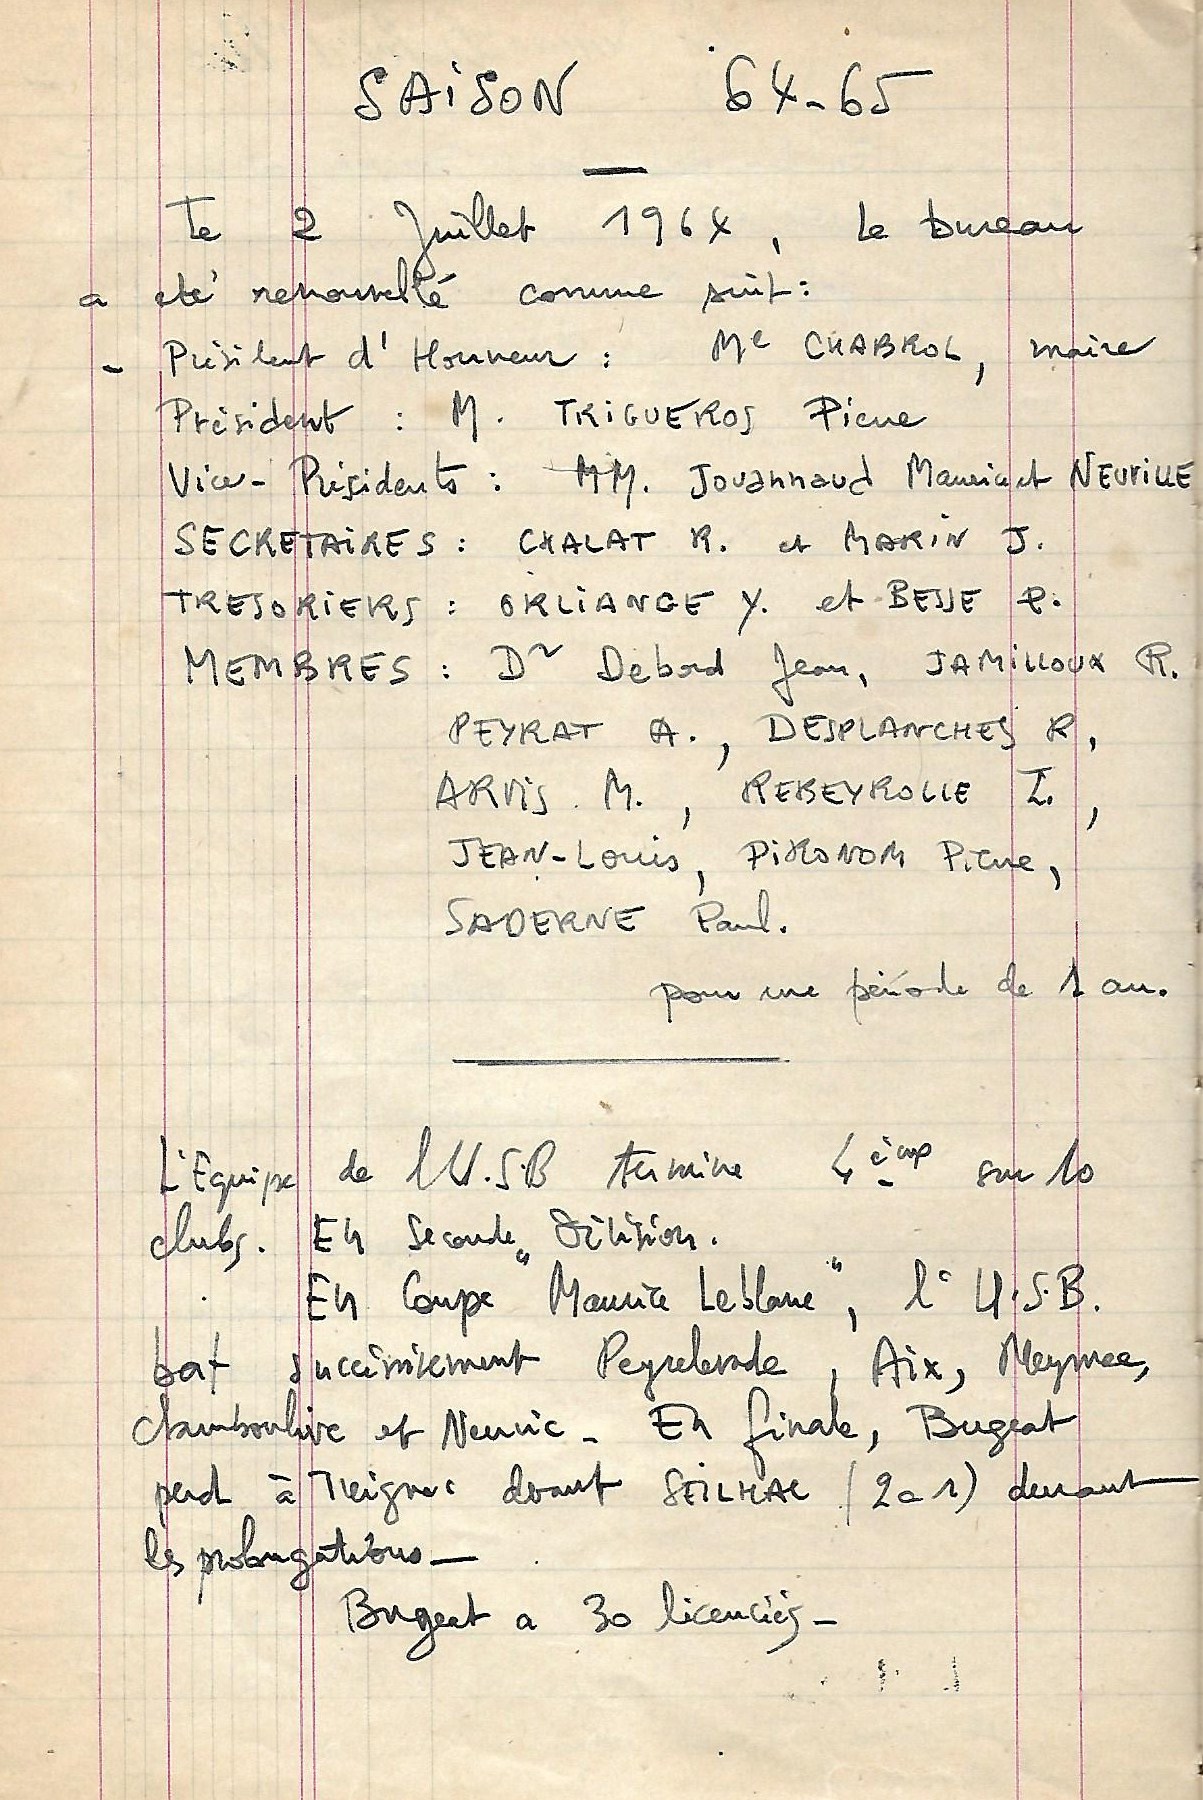 SAISON 64-65
Le 2 Juillet 1964, le bureau
a été renouvellé comme suit:
- Président d'Honneur : Me CHABROL, maire
Président : M. TRIGUEROS Pierre
Vice-Présidents : MM. Jouannaud Maurice et NEUVILLE
SECRETAIRES : CHALAT R. et MARIN J.
TRESORIERS : ORLIANGE Y. et BESSE P.
MEMBRES : Dr Debord Jean, JAMILLOUX R.
PEYRAT A., DESPLANCHES R,
ARVIS M., REBEYROLLE I.,
JEAN-Louis, PIRONOM Pierre,
SADERNE Paul.
pour une période de 1 an.
L'Equipe de l'U.S.B termine 4ème sur 10
clubs. En Seconde Division.
En Coupe "Maurice Leblanc", l'U.S.B.
bat successivement Peyrelevade, Aix, Meymac,
Chamboulive et Neuvic - En finale, Bugeat
perd à Treignac devant SEILHAC (2 a 1) durant
les prolongations -
Bugeat a 30 licenciés -